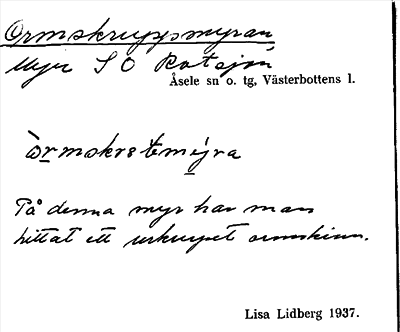 Ormskruppsmyran,
Myr S O Rotsjön,
Åsele sn o. tg, Västerbottens l.
På denna myr har man
hittat ett urkrupet ormskinn.
Lisa Lidberg 1937.